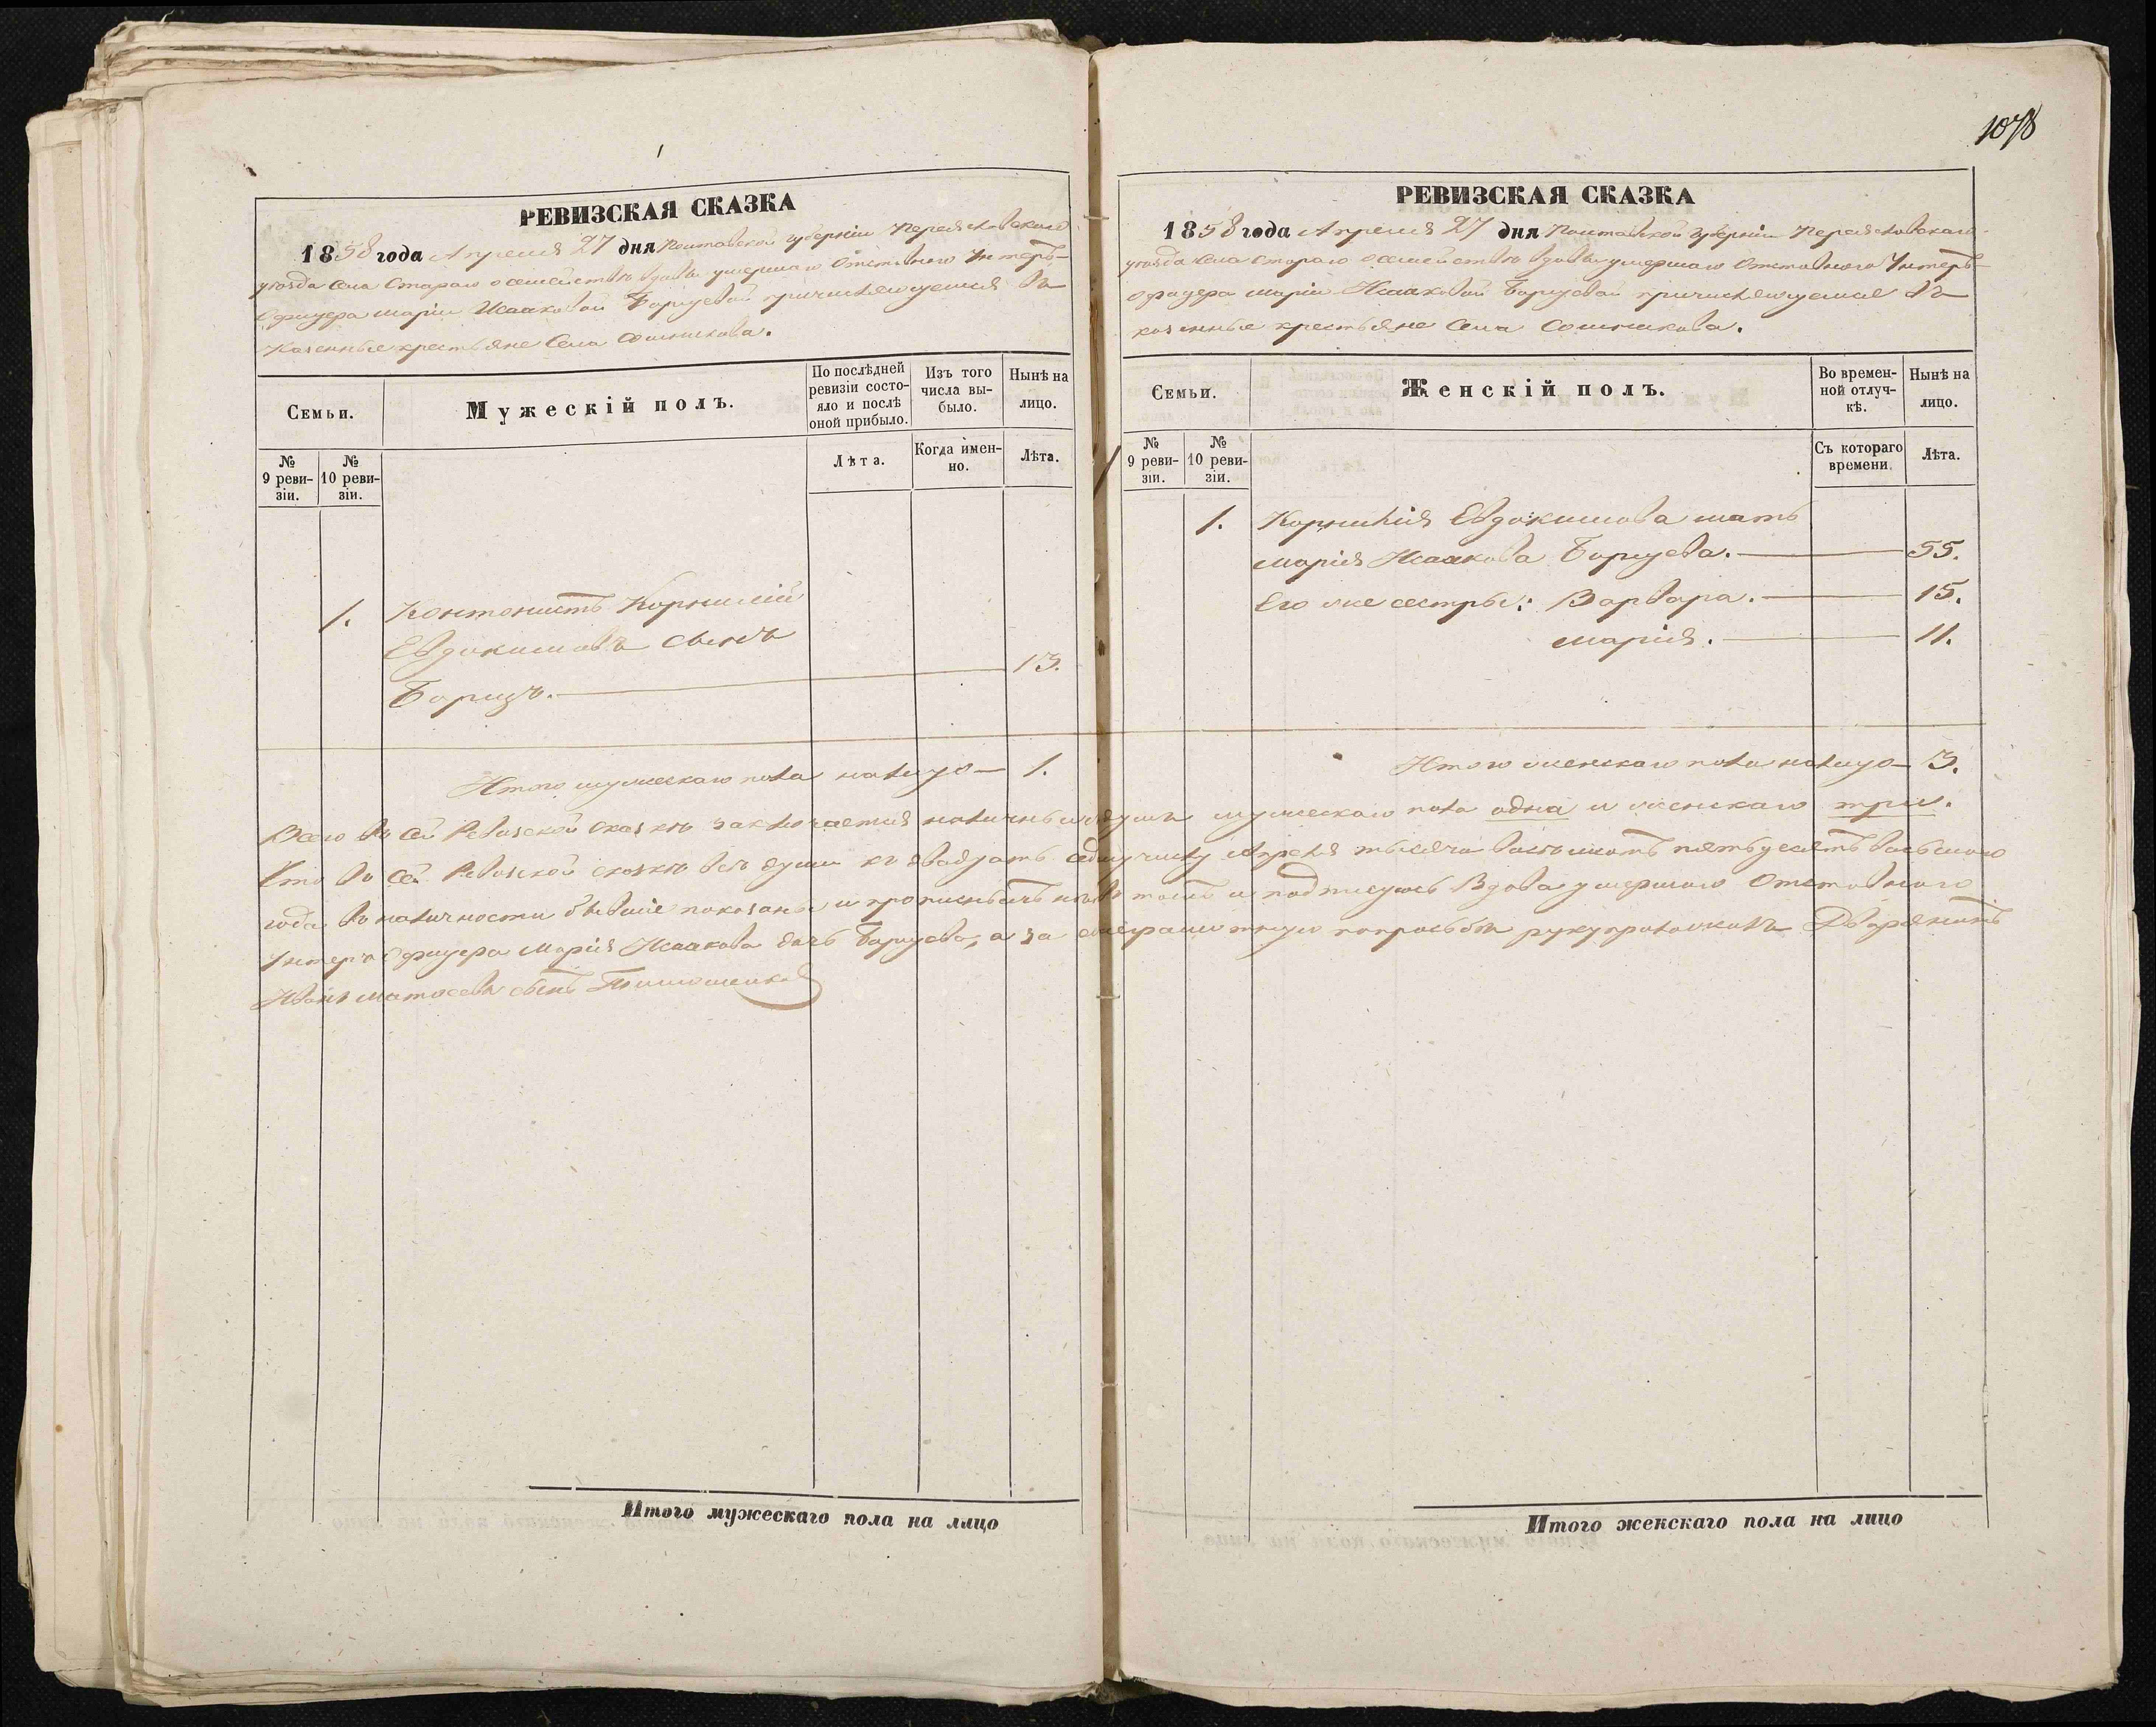 1078
РЕВИЗСКАЯ СКАЗКА
1858 года Апреля 27 дня Полтавской губерніи Переяславскаго
уѣзда села Стараго о семействѣ вдовы умершаго Отставного Унтеръ-
Офицера Маріи Исааковой Борцевой причисляющемся въ
Казенные крестьяне Села Сошникова.
Семьи.
Мужескій полъ.
По послѣдней ревизіи состояло и послѣ оной прибыло.
Изъ того числа выбыло.
Нынѣ на лицо.
№ 9 ревизіи.
№ 10 ревизіи.
Лѣта.
Когда именно.
Лѣта.
1. Контонистъ Корнилій
Евдокимовъ сынъ
Борцъ. 13.
Итого мужескаго пола налицо 1.
РЕВИЗСКАЯ СКАЗКА
1858 года Апреля 27 дня Полтавской губерніи Переяславскаго
уѣзда села Стараго о семействѣ вдовы умершаго Отставного Унтеръ-
офицера Маріи Исааковой Борцевой причисляющемся въ
казенные крестьяне Села Сошникова.
Семьи.
Женскій полъ.
Во временной отлучкѣ.
Нынѣ на лицо.
№ 9 ревизіи.
№ 10 ревизіи.
Съ котораго времени.
Лѣта.
1. Корнилія Евдокимова мать
Марія Исаакова Борцева. 55.
Его же сестры: Варвара. 15.
Марія. 11.
Итого женскаго пола налицо 3.
Всего въ сей Ревизской сказкѣ заключается наличныхъ душъ мужескаго пола одна и женскаго три.
Что въ сей Ревизской сказкѣ всѣ души къ двадцать седмому числу Апреля тысяча восемьсотъ пятьдесятъ восьмого
года въ наличности бывшіе показаны и прописныхъ нѣтъ въ томъ и подписуюсь Вдова умершаго Отставного
Унтеръ Офицера Марія Исаакова дочь Борцева, а за неграмотную по просьбѣ руку приложилъ Дворянинъ
Иванъ сынъ Тимошенко
Итого мужескаго пола на лицо
Итого женскаго пола на лицо